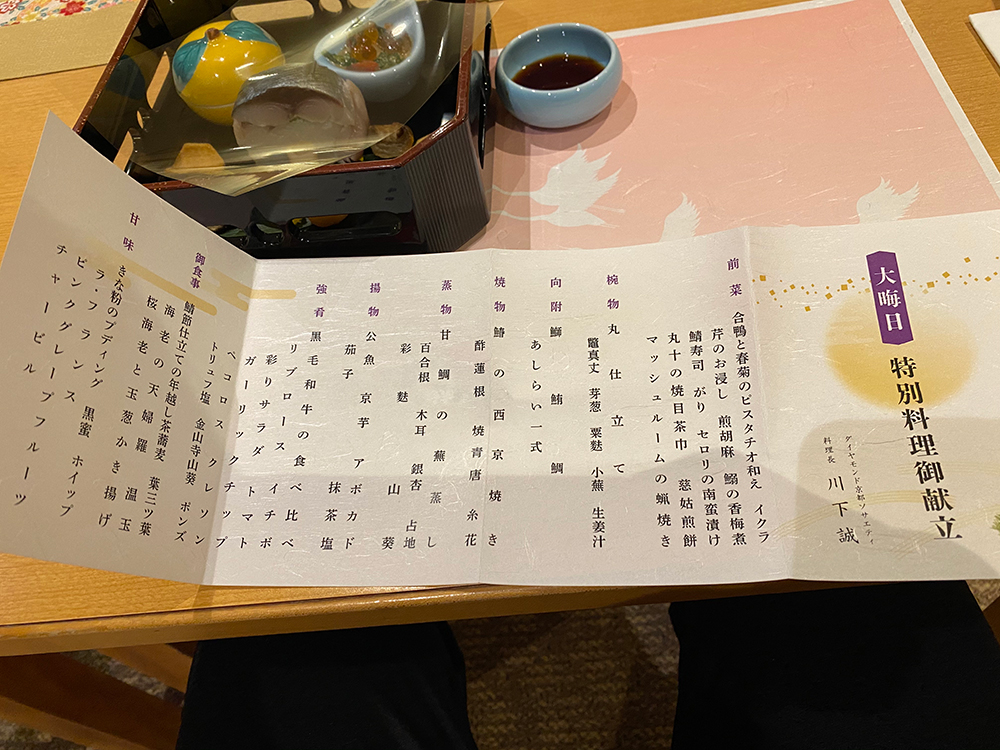 大晦日
特別料理御献立
ダイヤモンド京都ソサエティ
料理長 川下誠
前菜 合鴨と春菊のピスタチオ和え イクラ
芹のお浸し 煎胡麻 鰯の香梅煮
鯖寿司 がり セロリの南蛮漬け
丸十の焼目茶巾 慈姑煎餅
マッシュルームの蝋焼き
椀物 丸仕立て
鼈真丈 芽葱 粟麩 小蕪 生姜汁
向附 鰤 鮪 鯛
あしらい一式
焼物 鰆の西京焼き
酢蓮根 焼青唐 糸花
蒸物 甘鯛の蕪蒸し
百合根 木耳 銀杏 占地
彩麩 山葵
揚物 公魚 京芋 アボカド
茄子 抹茶塩
強肴 黒毛和牛の食べ比べ
リブロース イチボ
彩りサラダ トマト
ガーリックチップ
ペコロス クレソン
トリュフ塩 金山寺山葵 ポンズ
御食事 鯖節仕立ての年越し茶蕎麦 葉三ッ葉
海老の天婦羅 温玉
桜海老と玉葱かき揚げ
甘味 きな粉のプディング 黒蜜 ホイップ
ラ・フランス
ピンクグレープフルーツ
チャービル